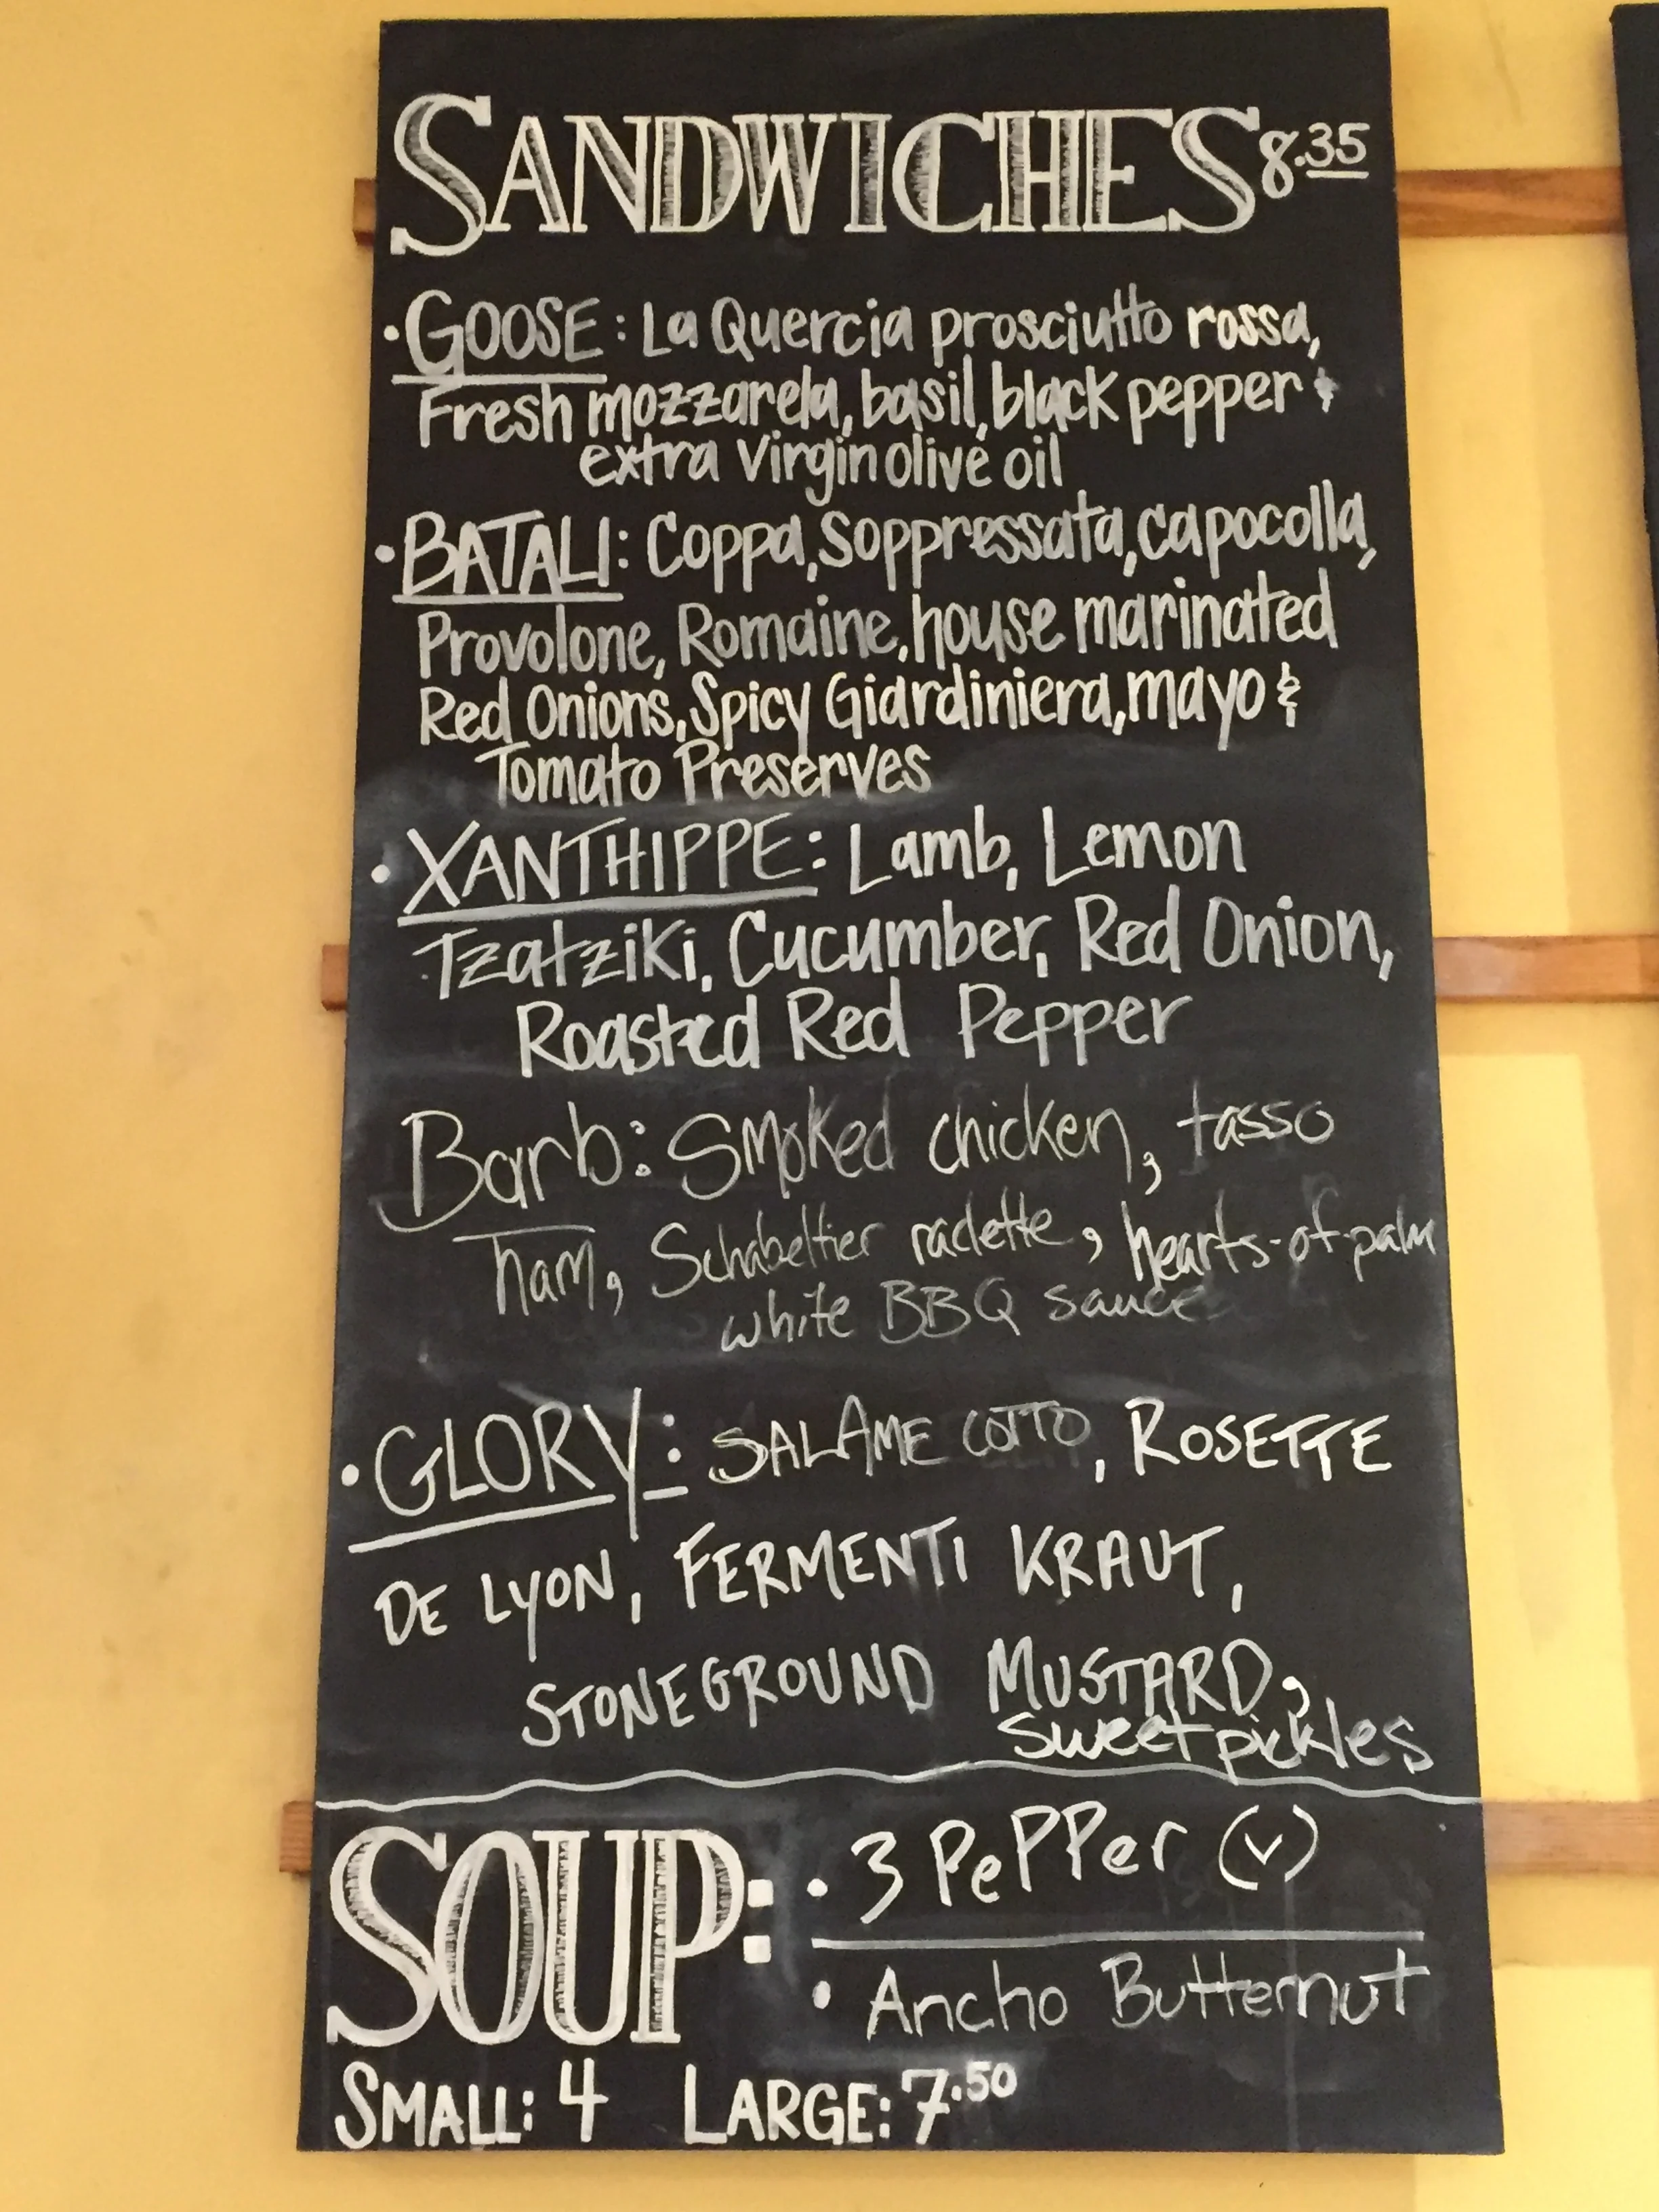 SANDWICHES 8.35
• GOOSE: La Quercia prosciutto rossa,
Fresh mozzarela, basil, black pepper &
extra virgin olive oil
• BATALI: Coppa, Soppressata, capocolla,
Provolone, Romaine, house marinated
Red Onions, Spicy Giardiniera, mayo &
Tomato Preserves
• XANTHIPPE: Lamb, Lemon
Tzatziki, Cucumber, Red Onion,
Roasted Red Pepper
Barb: Smoked chicken, tasso
ham, Schabeltier raclette, hearts-of-palm
white BBQ sauce
• GLORY: SALAME COTTO, ROSETTE
DE LYON, FERMENTI KRAUT,
STONEGROUND MUSTARD,
sweet pickles
SOUP: • 3 PePPer (v)
• Ancho Butternut
SMALL: 4 LARGE: 7.50